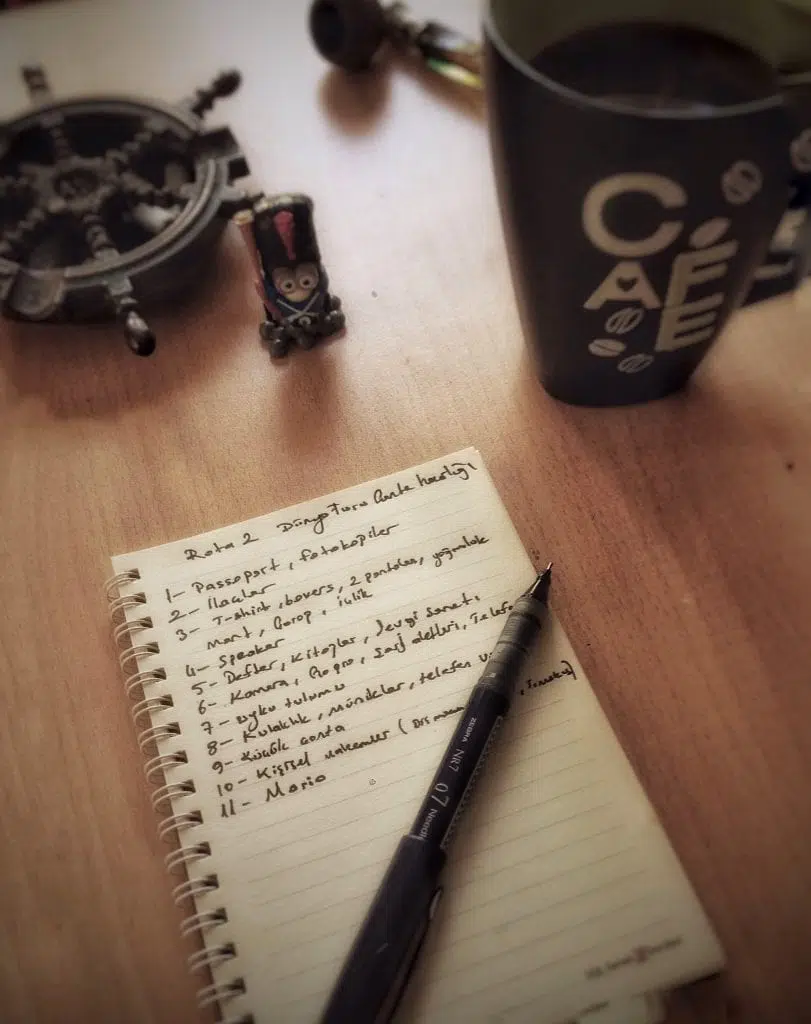 CAFE
Rota 2 Dünya Turu Çanta hazırlığı
1- Passaport, fotokopiler
2- İlaçlar
3- T-shirt, boxers, 2 pantolon, yağmurluk
mont, Çorap, içlik
4- Speaker
5- Defter, Kitaplar, Sevgi Sanatı
6- Kamera, Gopro, Şarj aletleri, Telefo
7- uyku tulumu
8- Kulaklık, telefon
9- Küçük çanta
10- Kişisel malzemeler (Diş
11- Mario
ZEBRA NR7 07 Needle